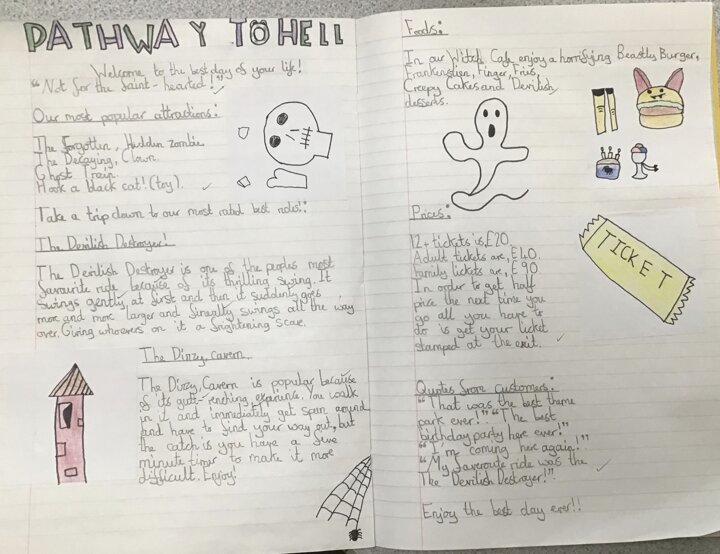 PATHWAY TO HELL
Welcome to the best day of your life!
"Not for the faint-hearted!"
Our most popular attractions:
The Forgotten, Hidden zombie
The Decaying, Clown.
Ghost Train.
Hook a black cat! (toy).
Take a trip down to our most rated best rides!:
The Devilish Destroyer!
The Devilish Destroyer is one of the peoples most
favourite ride because of its thrilling swing. It
swings gently, at first and then it suddenly goes
more and more larger and finally swings all the way
over. Giving whoevers on it a frightening scare.
The Dizzy, Cavern
The Dizzy, Cavern is popular because
of its experience. You walk
in it and immediately get spun around
and have to find your way out, but
the catch is you have a five
minute timer to make it more
difficult. Enjoy!
Foods:
In our Witch Cafe enjoy a horrifying Beastly Burger,
Finger, Fries,
Creepy Cakes and Devilish
desserts.
Prices:
12+ tickets is, £20
Adult tickets are, £40.
Family tickets are, £90
In order to get half
price the next time you
go all you have to
do is get your ticket
stamped at the exit.
TICKET
Quotes from customers:
"That was the best theme
park ever!" "The best
birthday party here ever!"
"I'm coming here again!"
"My faveroute ride was the
The Devilish Destroyer!"
Enjoy the best day ever!!